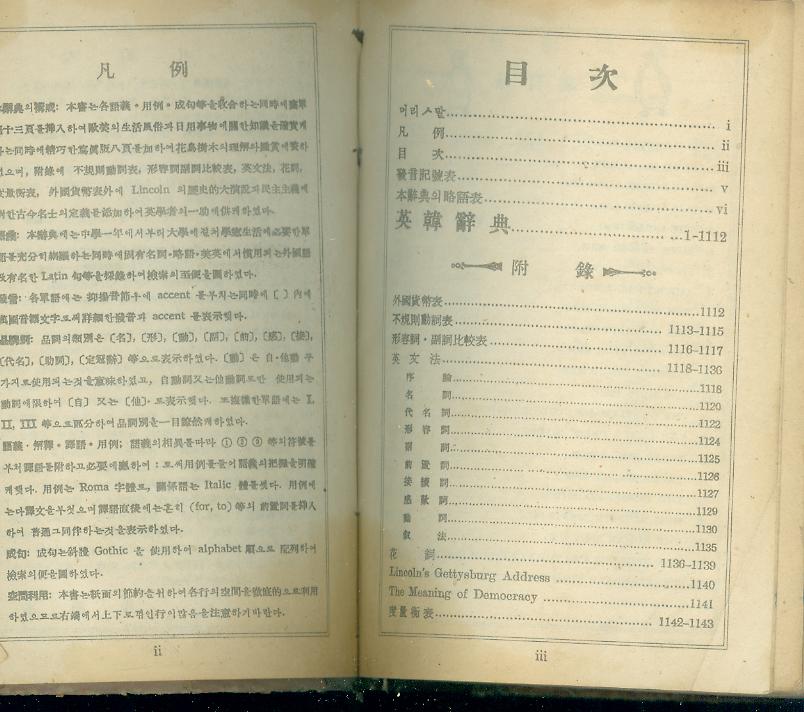 凡 例
辭典의構成: 本書는各語義・用例・成句等을收合하는同時에
十三頁를揷入하여歐英의生活風俗과日用事物에關한知識을
는同時에精巧한寫眞版八頁를加하여花鳥樹木의理解와
으며, 附錄에 不規則動詞表, 形容詞副詞比較表, 英文法, 花詞,
度量衡表, 外國貨幣表外에 Lincoln 의歷史的大演說과民主主義에
한古今名士의定義를添加하여英學者의一助에供케하였다.
本辭典에는中學一年에서부터大學에 學窓生活에必要한單
語를充分히網羅하는同時에固有名詞・略語・美英에서慣用되는外國語
有名한 Latin 句等을採錄하여檢索의至便을圖하였다.
發音: 各單語에는 抑揚音節우에 accent 를부치는同時에 [ ] 內에
萬國音標文字로써詳細한發音과 accent 를表示했다.
品詞: 品詞의類別은 [名], [形], [動], [副], [前], [感], [接],
[代名], [助詞], [定冠詞] 等으로表示하였다. [動] 은 自・他動 두
가지로使用되는것을意味하였고, 自動詞又는他動詞로만 使用되는
動詞에限하여 [自] 又는 [他]・로表示했다. 또複雜한單語에는 I.
II, III 等으로區分하여品詞別을一目瞭然케하였다.
語義・解釋・譯語・用例; 語義의相異를따라 ① ② ③ 等의符號를
부처譯語를附하고必要에應하여 : 로써用例를들어語義의把握을明確
케했다. 用例는 Roma 字體로, 關係語는 Italic 體를썼다. 用例에
는다譯文을부첫으며譯語直後에는흔히 (for, to) 等의 前置詞를揷入
하여 普通그同伴하는것을表示하였다.
成句: 成句는斜體 Gothic 을 使用하여 alphabet 順으로 配列하여
檢索의便을圖하였다.
空間利用: 本書는紙面의節約을위하여各行의空間을徹底的으로利用
하였으므로右端에서上下로꺾인行이많음을注意하기바란다.
ii
目 次
머리ㅅ말 i
凡 例 ii
目 次 iii
發音記號表 v
本辭典의略語表 vi
英韓辭典 1-1112
附 錄
外國貨幣表 1112
不規則動詞表 1113-1115
形容詞・副詞比較表 1116-1117
英 文 法 1118-1136
序 論 1118
名 詞 1120
代 名 詞 1122
形 容 詞 1124
副 詞 1125
前 置 詞 1126
接 續 詞 1127
感 歎 詞 1129
動 詞 1130
敍 法 1135
花 詞 1136-1139
Lincoln's Gettysburg Address 1140
The Meaning of Democracy 1141
度量衡表 1142-1143
iii